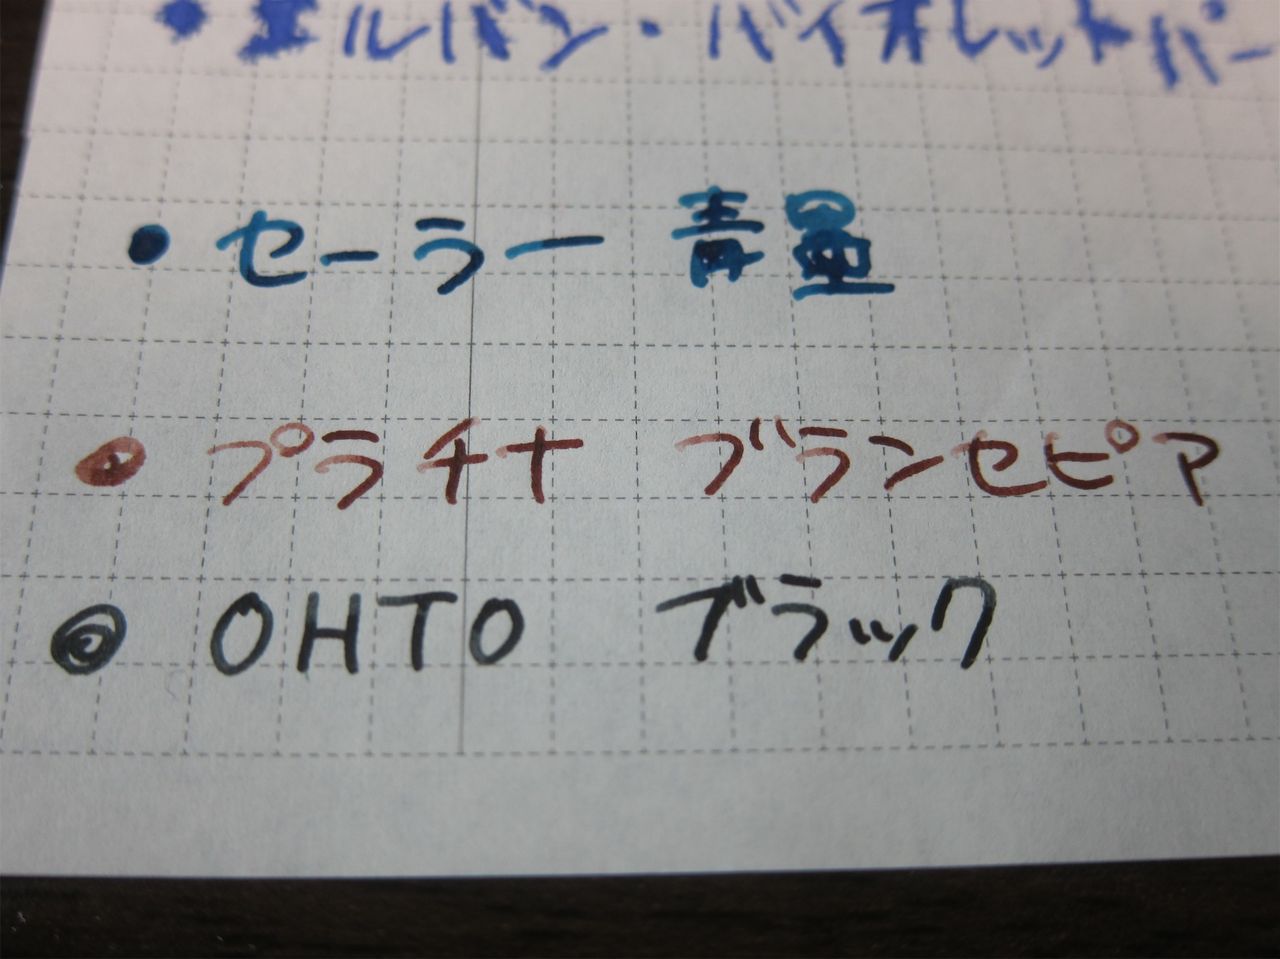 ・エルバン・バイオレットパー
・セーラー 青墨
・プラチナ ブランセピア
・OHTO ブラック